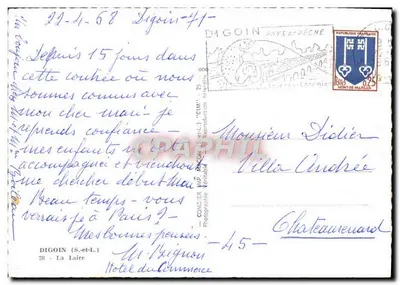 22-4-68 Digoin-71-
Depuis 15 jours dans
cette contrée où nous
sommes connus avec
mon cher mari- je
reprends confiance-
mes enfants m'ont
accompagnée et viendront
me chercher début Mai
Beau temps- vous
verrais je à Paris?
Mes bonnes pensées-
M. Brignon
Hotel du Commerce
DIGOIN (S.-et-L.)
28 - La Loire
DIGOIN
PAYS DE PÊCHE
REPUBLIQUE FRANCAISE
0,25
MONT-DE-MARSAN
Monsieur Didier
Villa Andrée
Chateaurenard
-45-
CARTHAPHILIE